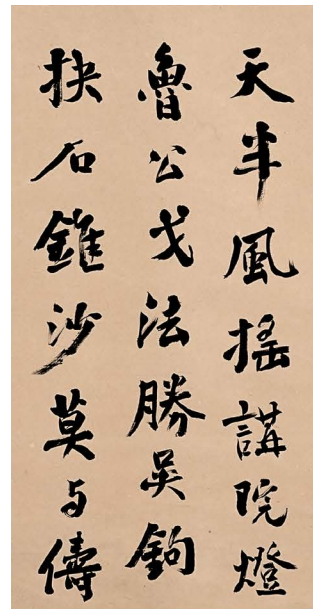 天半風搖講院燈
魯公戈法勝吳鉤
抉石錐沙莫与儔